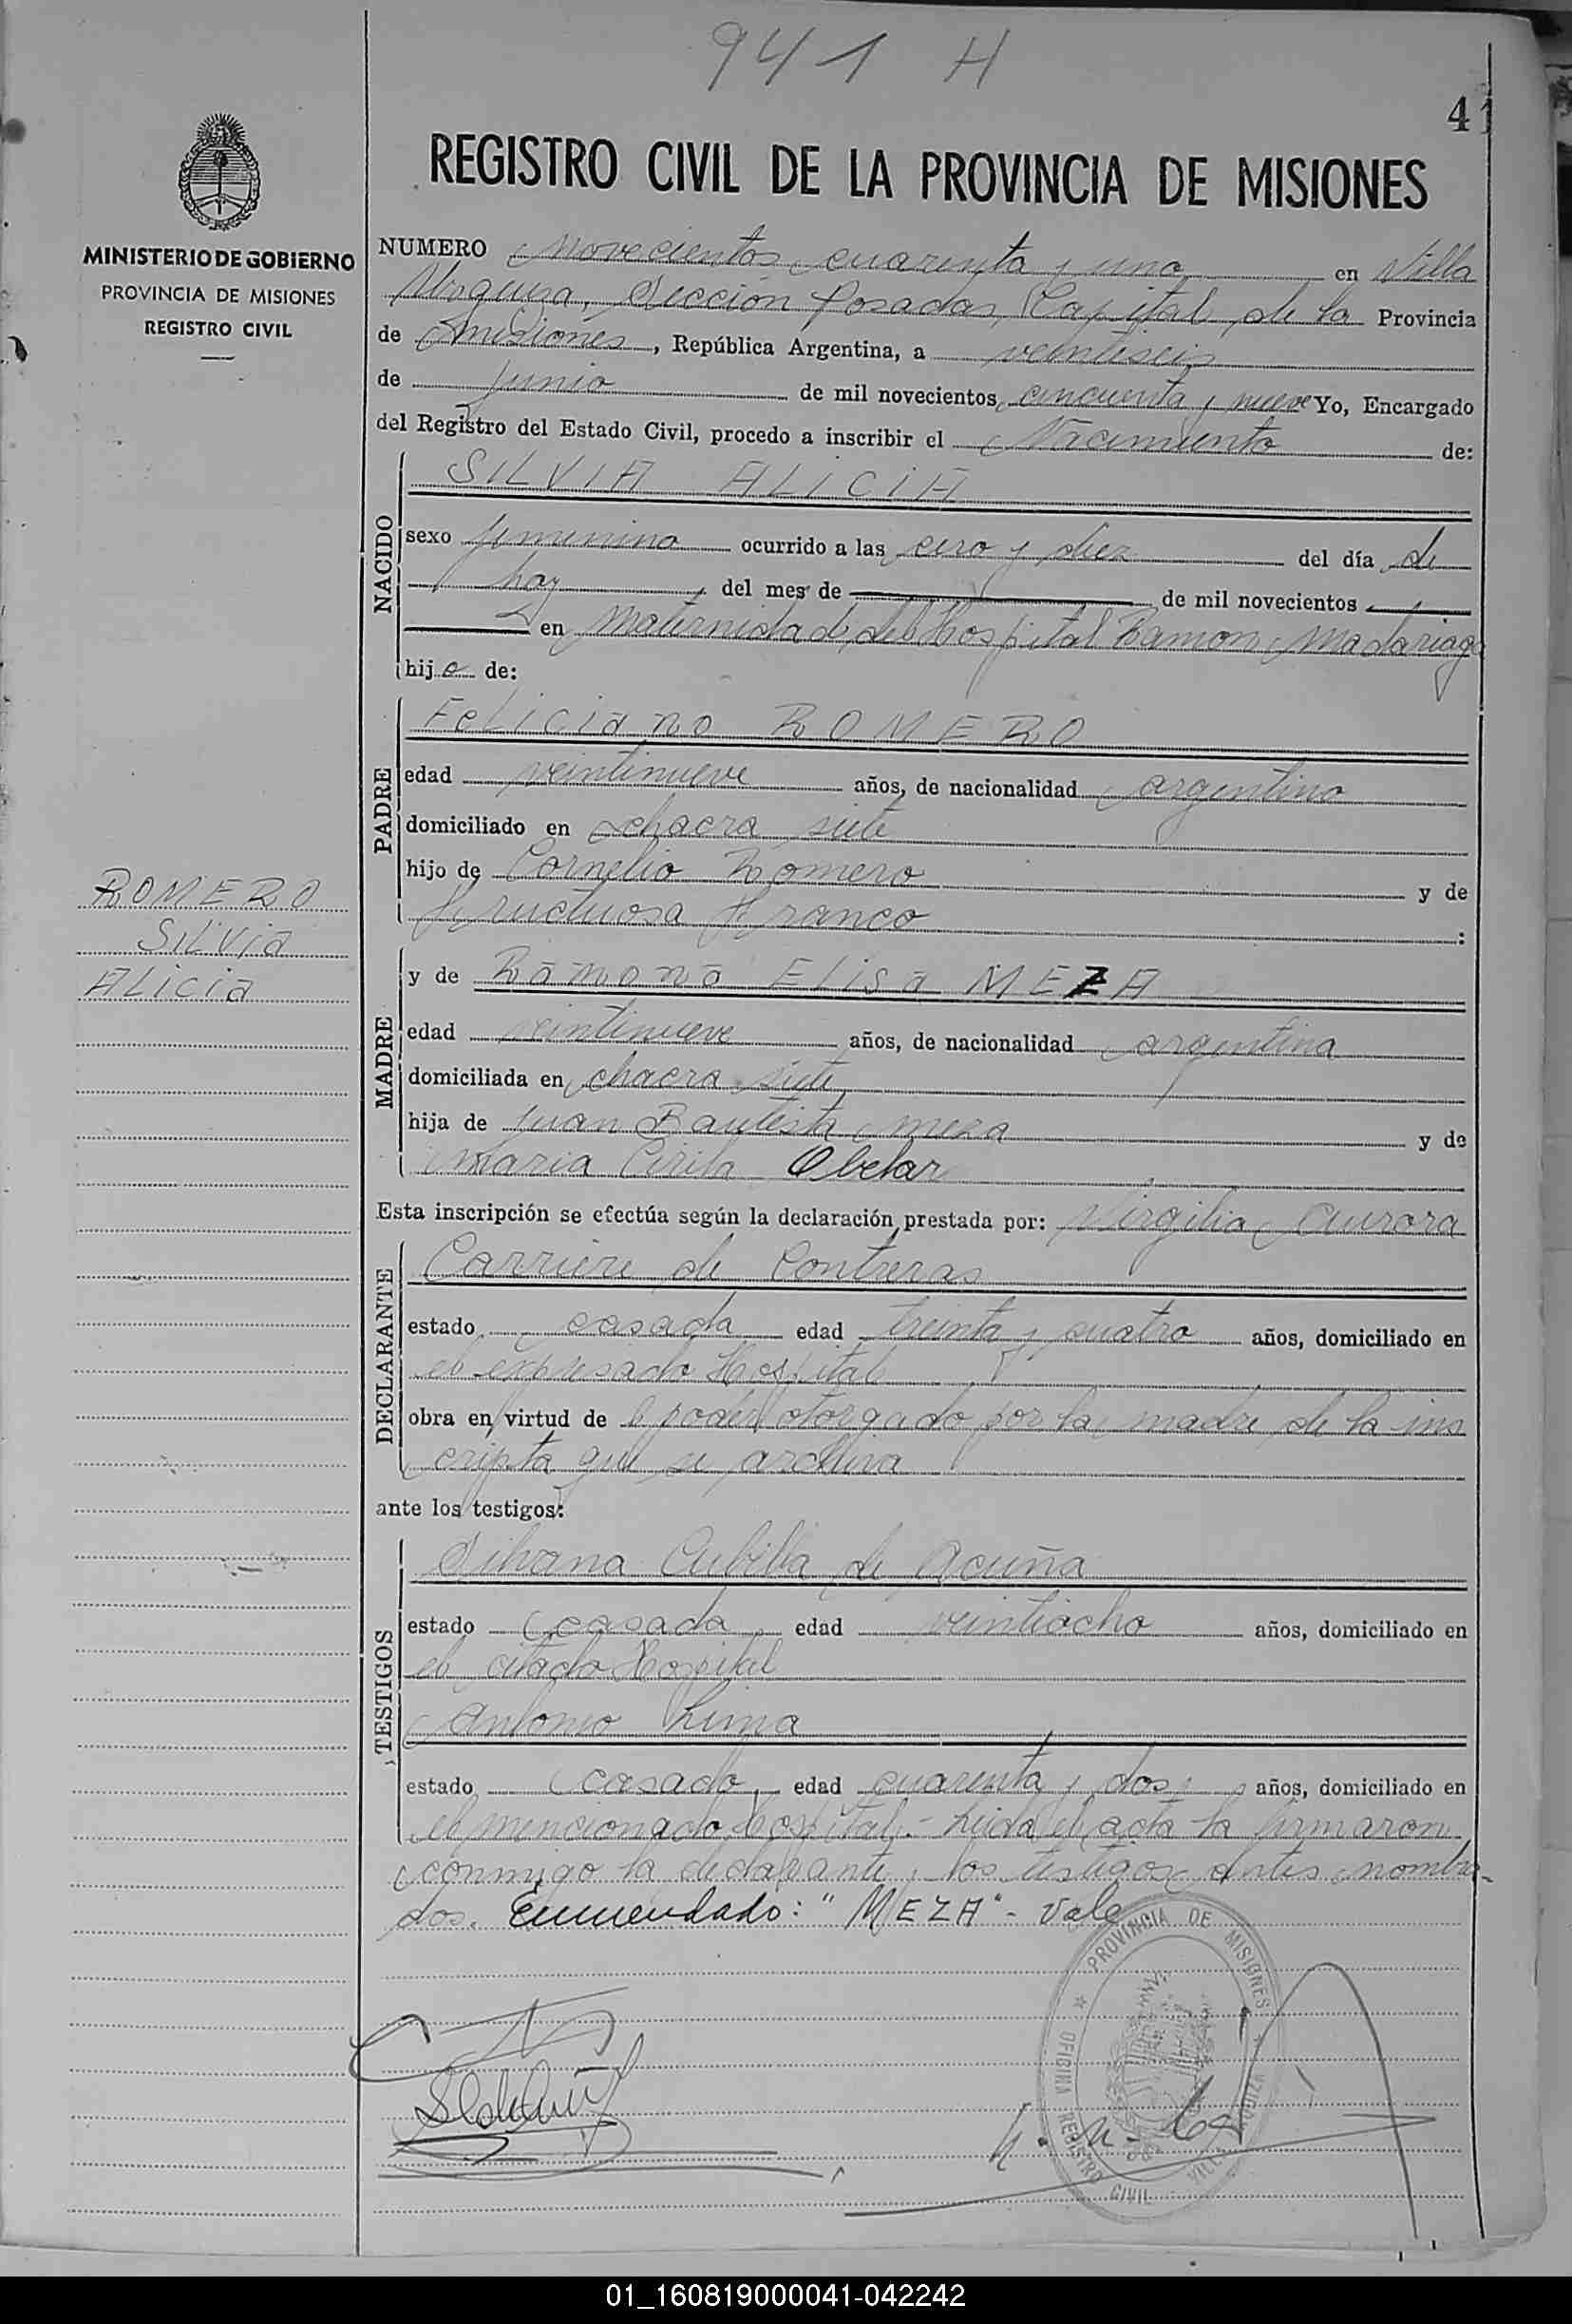 941 H
41
MINISTERIO DE GOBIERNO
PROVINCIA DE MISIONES
REGISTRO CIVIL
ROMERO
SILVIA
ALICIA
REGISTRO CIVIL DE LA PROVINCIA DE MISIONES
NUMERO Novecientos cuarenta y uno en Villa
Urquiza, Sección Posadas, Capital de la Provincia
de Misiones, República Argentina, a veintiseis
de Junio de mil novecientos cincuenta y nueve Yo, Encargado
del Registro del Estado Civil, procedo a inscribir el Nacimiento de:
NACIDO
SILVIA ALICIA
sexo femenino ocurrido a las cero y diez del día de
hoy del mes de de mil novecientos
en Maternidad del Hospital Ramon Madariaga
hija de:
PADRE
Feliciano ROMERO
edad veintinueve años, de nacionalidad argentino
domiciliado en chacra siete
hijo de Cornelio Romero y de
Fructuosa Franco :
MADRE
y de Ramona Elisa MEZA
edad veintinueve años, de nacionalidad argentina
domiciliada en chacra siete
hija de Juan Bautista Meza y de
Maria Cirila Obelar
Esta inscripción se efectúa según la declaración prestada por: Virgilia Aurora
DECLARANTE
Carriere de Contreras
estado casada edad treinta y cuatro años, domiciliado en
el expresado Hospital
obra en virtud de poder otorgado por la madre de la ins
cripta que se archiva
ante los testigos:
TESTIGOS
Silvana Cubilla de Acuña
estado casada edad veintiocho años, domiciliado en
el citado Hospital
Antonio Lima
estado casado, edad cuarenta y dos años, domiciliado en
el mencionado Hospital.- Leida el acta la firmaron
conmigo la declarante y los testigos antes nombra-
dos. Enmendado: "MEZA" - Vale
PROVINCIA DE MISIONES
OFICINA REGISTRO CIVIL
01_160819000041-042242